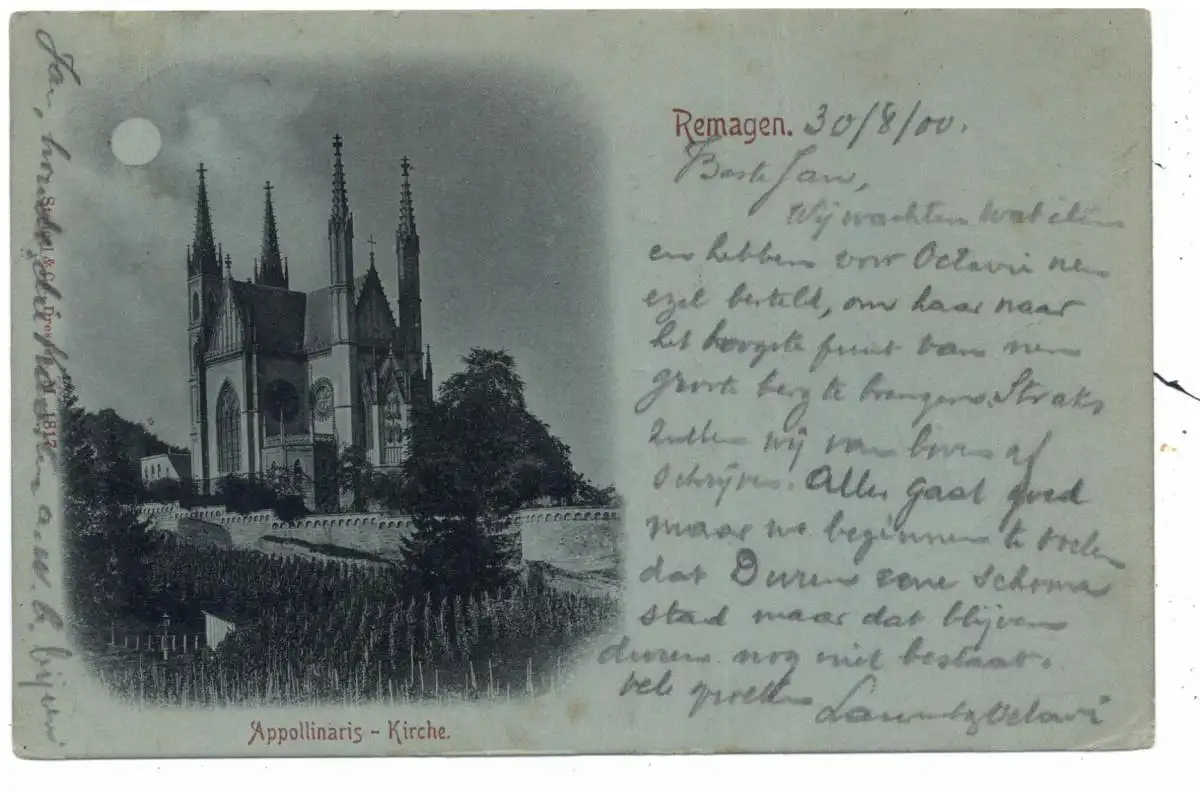 Remagen. 30/8/00.
Beste Jan,
Wij wachten wat
en hebben voor Octavie
ezel besteld, om haar naar
het hoogste punt van
groote berg te brengen. Straks
zullen wij van boven af
schrijven. Alles gaat goed
maar we beginnen te voelen
dat Duren eene schoone
stad maar dat blijven
duren nog niet bestaat.
vele groeten
Jan, houd die kaarten a.u.b. bijeen
Stengel & Co., Dresden 1817
Appollinaris - Kirche.